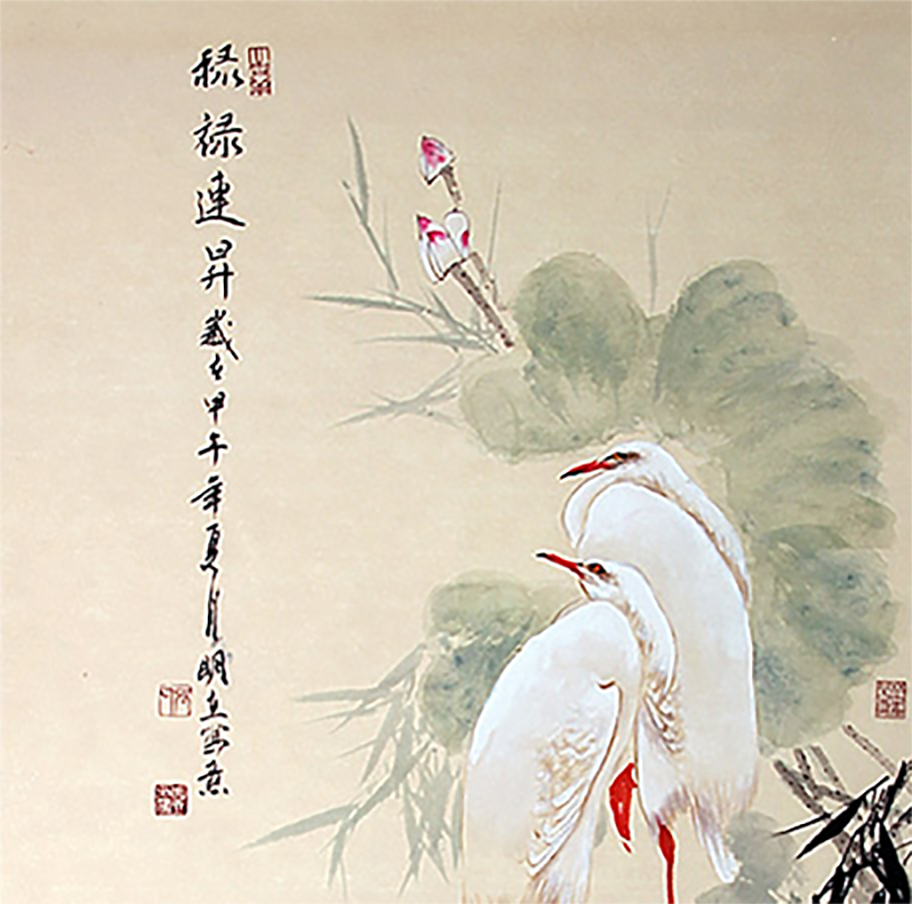 禄連昇歲在甲午年夏月明立寫意